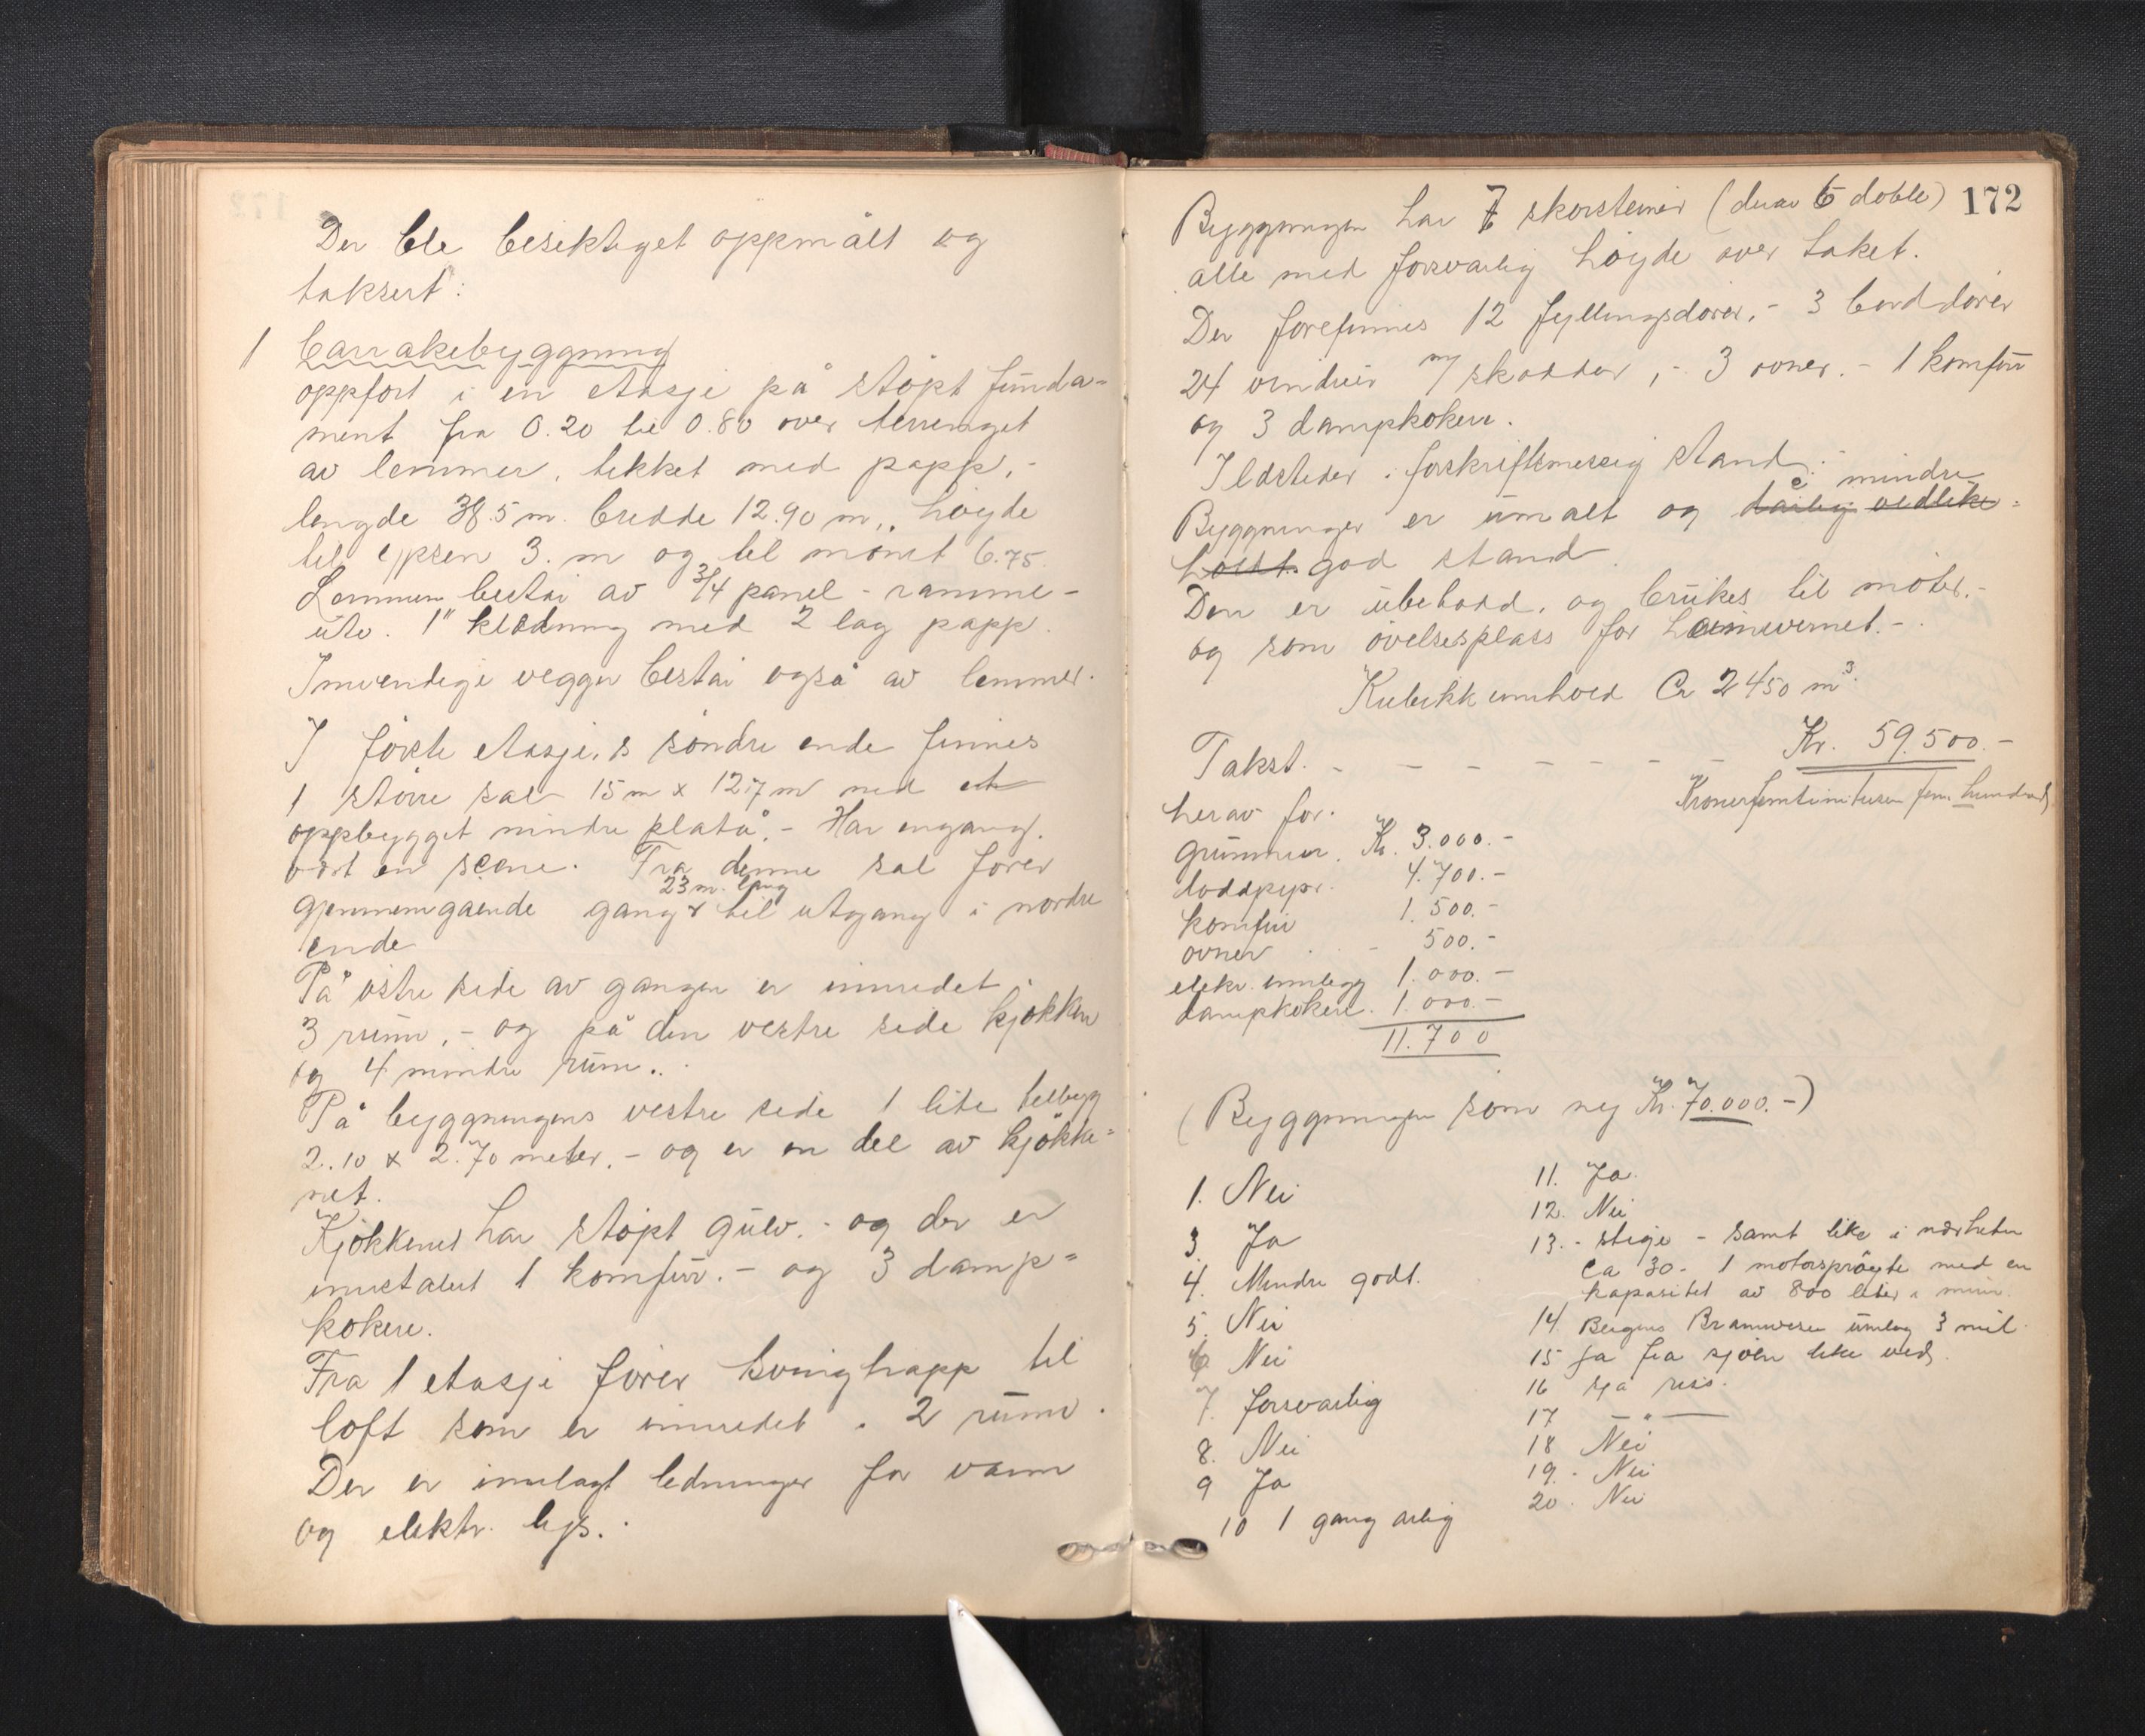 Der ble besiktiget oppmålt og
taksert:
1 barrakebyggning
oppført i en etasje på støpt funda=
ment fra 0.20 til 0.80 over terrenget
av lemmer, tekket med papp,-
lengde 38.5 m. bredde 12.90 m., høyde
til gesen 3. m og til mønet 6.75
Lemmene består av 3/4 panel - ramme-
utv. 1" kledning med 2 lag papp.
Innvendige vegger består også av lemmer.
I første etasje, s søndre ende finnes
1 større sal 15 m x 12.7 m med et
oppbygget mindre platå,- Har engang.
vært en scene. Fra denne sal fører
23 m. lang
gjennemgående gang til utgang i nordre
ende
På østre side av gangen er innredet
3 rum,- og på den vestre side kjøkken
og 4 mindre rum..
På byggningens vestre side 1 lite tilbygg
2.10 x 2.70 meter,- og er en del av kjøkke=
net.
Kjøkkenet har støpt gulv.- og der er
innstalert 1 komfur.- og 3 damp=
kokere.
Fra 1 etasje fører svingtrapp til
loft som er innredet i 2 rum.
Der er innlagt ledninger for vann
og elektr. lys.
172
Byggningen har 7 skorsteiner (derav 6 doble)
alle med forsvarlig høyde over taket.
Der forefinnes 12 fyllingsdører,- 3 borddører
24 vinduer m/ skodder,- 3 ovner.- 1 komfur
og 3 dampkokere.
Ildsteder i forskriftsmessig stand.
Byggninger er umalt og dårlig vedlike= i mindre
holdt. god stand.
Den er ubebodd, og brukes til møter,-
og som øvelsesplass for heimevernet.-
Kubikkinnhold Ca 2450 m3.
Takst. - - - - - - - Kr. 59.500.-
Kronerfemtinitusen fem hundred
herav for:
grunnmur. Kr. 3.000.-
loddpipr. 4.700.-
komfur 1.500.-
ovner . - 500.-
elekr. innlegg 1.000.-
dampkokere. 1.000.-
11.700
(Byggningen som ny Kr. 70.000.-)
1. Nei
3. Ja
4. Mindre godt.
5. Nei
6 Nei
7. forsvarlig
8. Nei
9 Ja
10 1 gang årlig
11. Ja.
12. Nei
13.- stige - samt like i nærheten
ca 30- 1 motorsprøyte med en
kapasitet av 800 liter i min.
14 Bergens Brannvesen umlag 3 mil.
15 Ja fra sjøen like ved.
16 sja riss.
17 - " -
18 Nei
19.- Nei
20. Nei